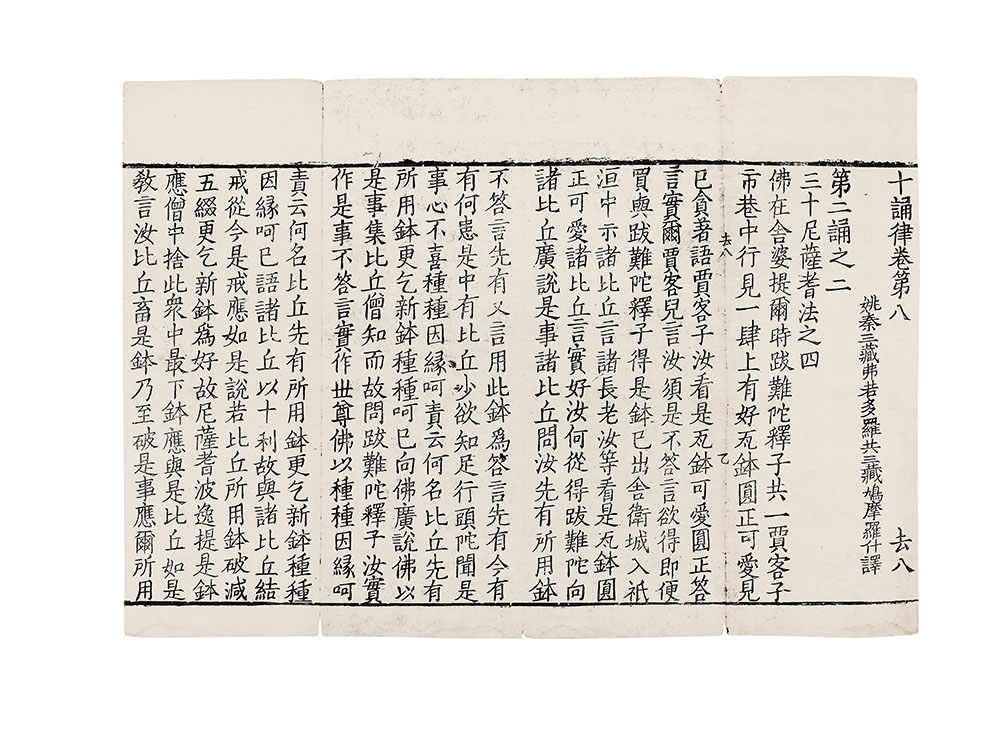 十誦律卷第八 去八
姚秦三藏弗若多羅共三藏鳩摩羅什譯
第二誦之二
三十尼薩耆法之四
佛在舍婆提爾時跋難陀釋子共一賈客子
市巷中行見一肆上有好瓦鉢圓正可愛見
去八 乙
已貪著語賈客子汝看是瓦鉢可愛圓正答
言實爾賈客兒言汝須是不答言欲得即便
買與跋難陀釋子得是鉢已出舍衛城入祇
洹中示諸比丘言諸長老汝等看是瓦鉢圓
正可愛諸比丘言實好汝何從得跋難陀向
諸比丘廣說是事諸比丘問汝先有所用鉢
不答言先有又言用此鉢為答言先有今有
有何患是中有比丘少欲知足行頭陀聞是
事心不喜種種因緣呵責云何名比丘先有
所用鉢更乞新鉢種種呵已向佛廣說佛以
是事集比丘僧知而故問跋難陀釋子汝實
作是事不答言實作世尊佛以種種因緣呵
責云何名比丘先有所用鉢更乞新鉢種種
因緣呵已語諸比丘以十利故與諸比丘結
戒從今是戒應如是說若比丘所用鉢破減
五綴更乞新鉢為好故尼薩耆波逸提是鉢
應僧中捨此眾中最下鉢應與是比丘如是
教言汝比丘畜是鉢乃至破是事應爾所用